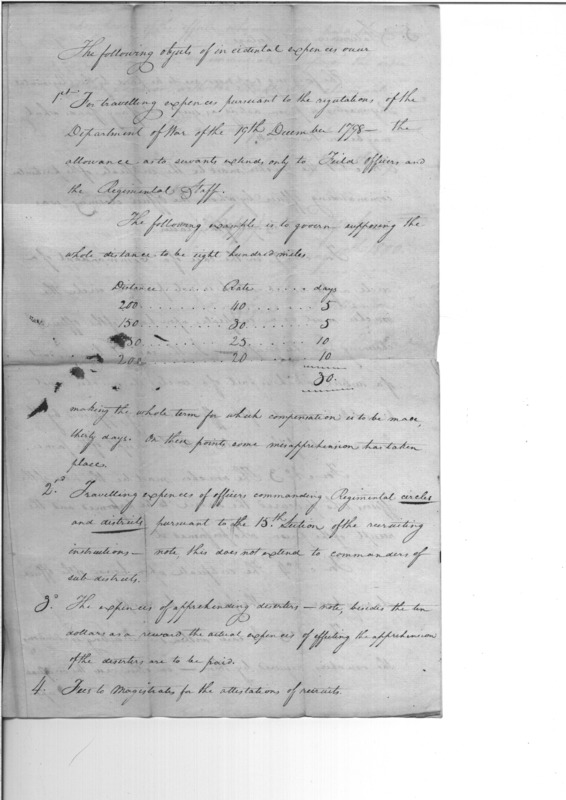 The following objects of incidental expences occur
1st For travelling expences pursuant to the regulations of the
Department of War of the 19th December 1798 — the
allowance as to servants extends only to Field officers and
the Regimental Staff.
The following example is to govern supposing the
whole distance to be eight hundred miles
Distance ...... Rate ..... days
200 ........ 40 ...... 5
150 ........ 30 ...... 5
250 ........ 25 ...... 10
200 ........ 20 ...... 10
30.
making the whole term for which compensation is to be made,
thirty days. On these points some misapprehension has taken
place.
2.º Travelling expences of officers commanding Regimental circles
and districts pursuant to the 15.th Section of the recruiting
instructions — note, this does not extend to commanders of
sub-districts.
3º The expences of apprehending deserters — note, besides the ten
dollars as a reward, the actual expences of effecting the apprehension
of the deserters are to be paid.
4. Fees to Magistrates for the attestations of recruits.